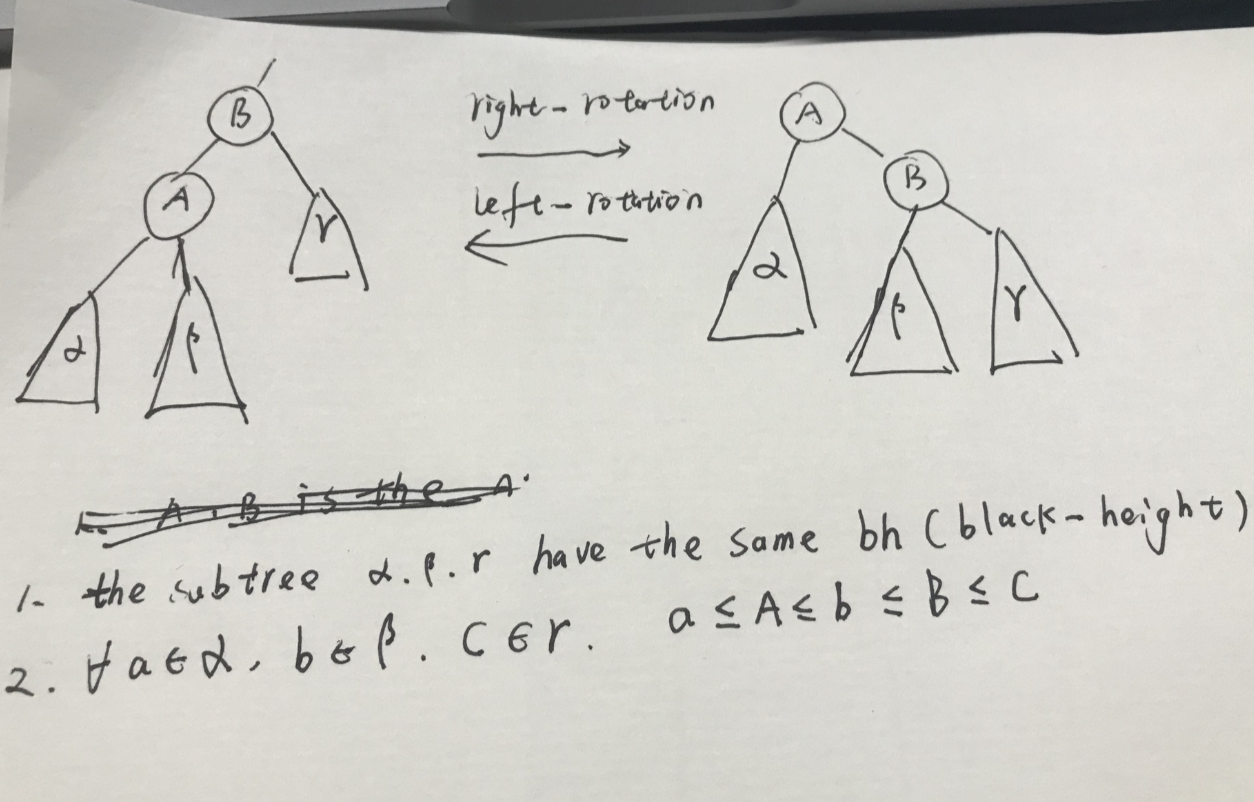 B
A
γ
α
β
right-rotation
left-rotation
A
B
α
β
γ
1. A.B is the A.
1. the subtree α.β.r have the same bh (black-height)
2. ∀ a∈α, b∈β. C∈r. a ≤ A ≤ b ≤ B ≤ C